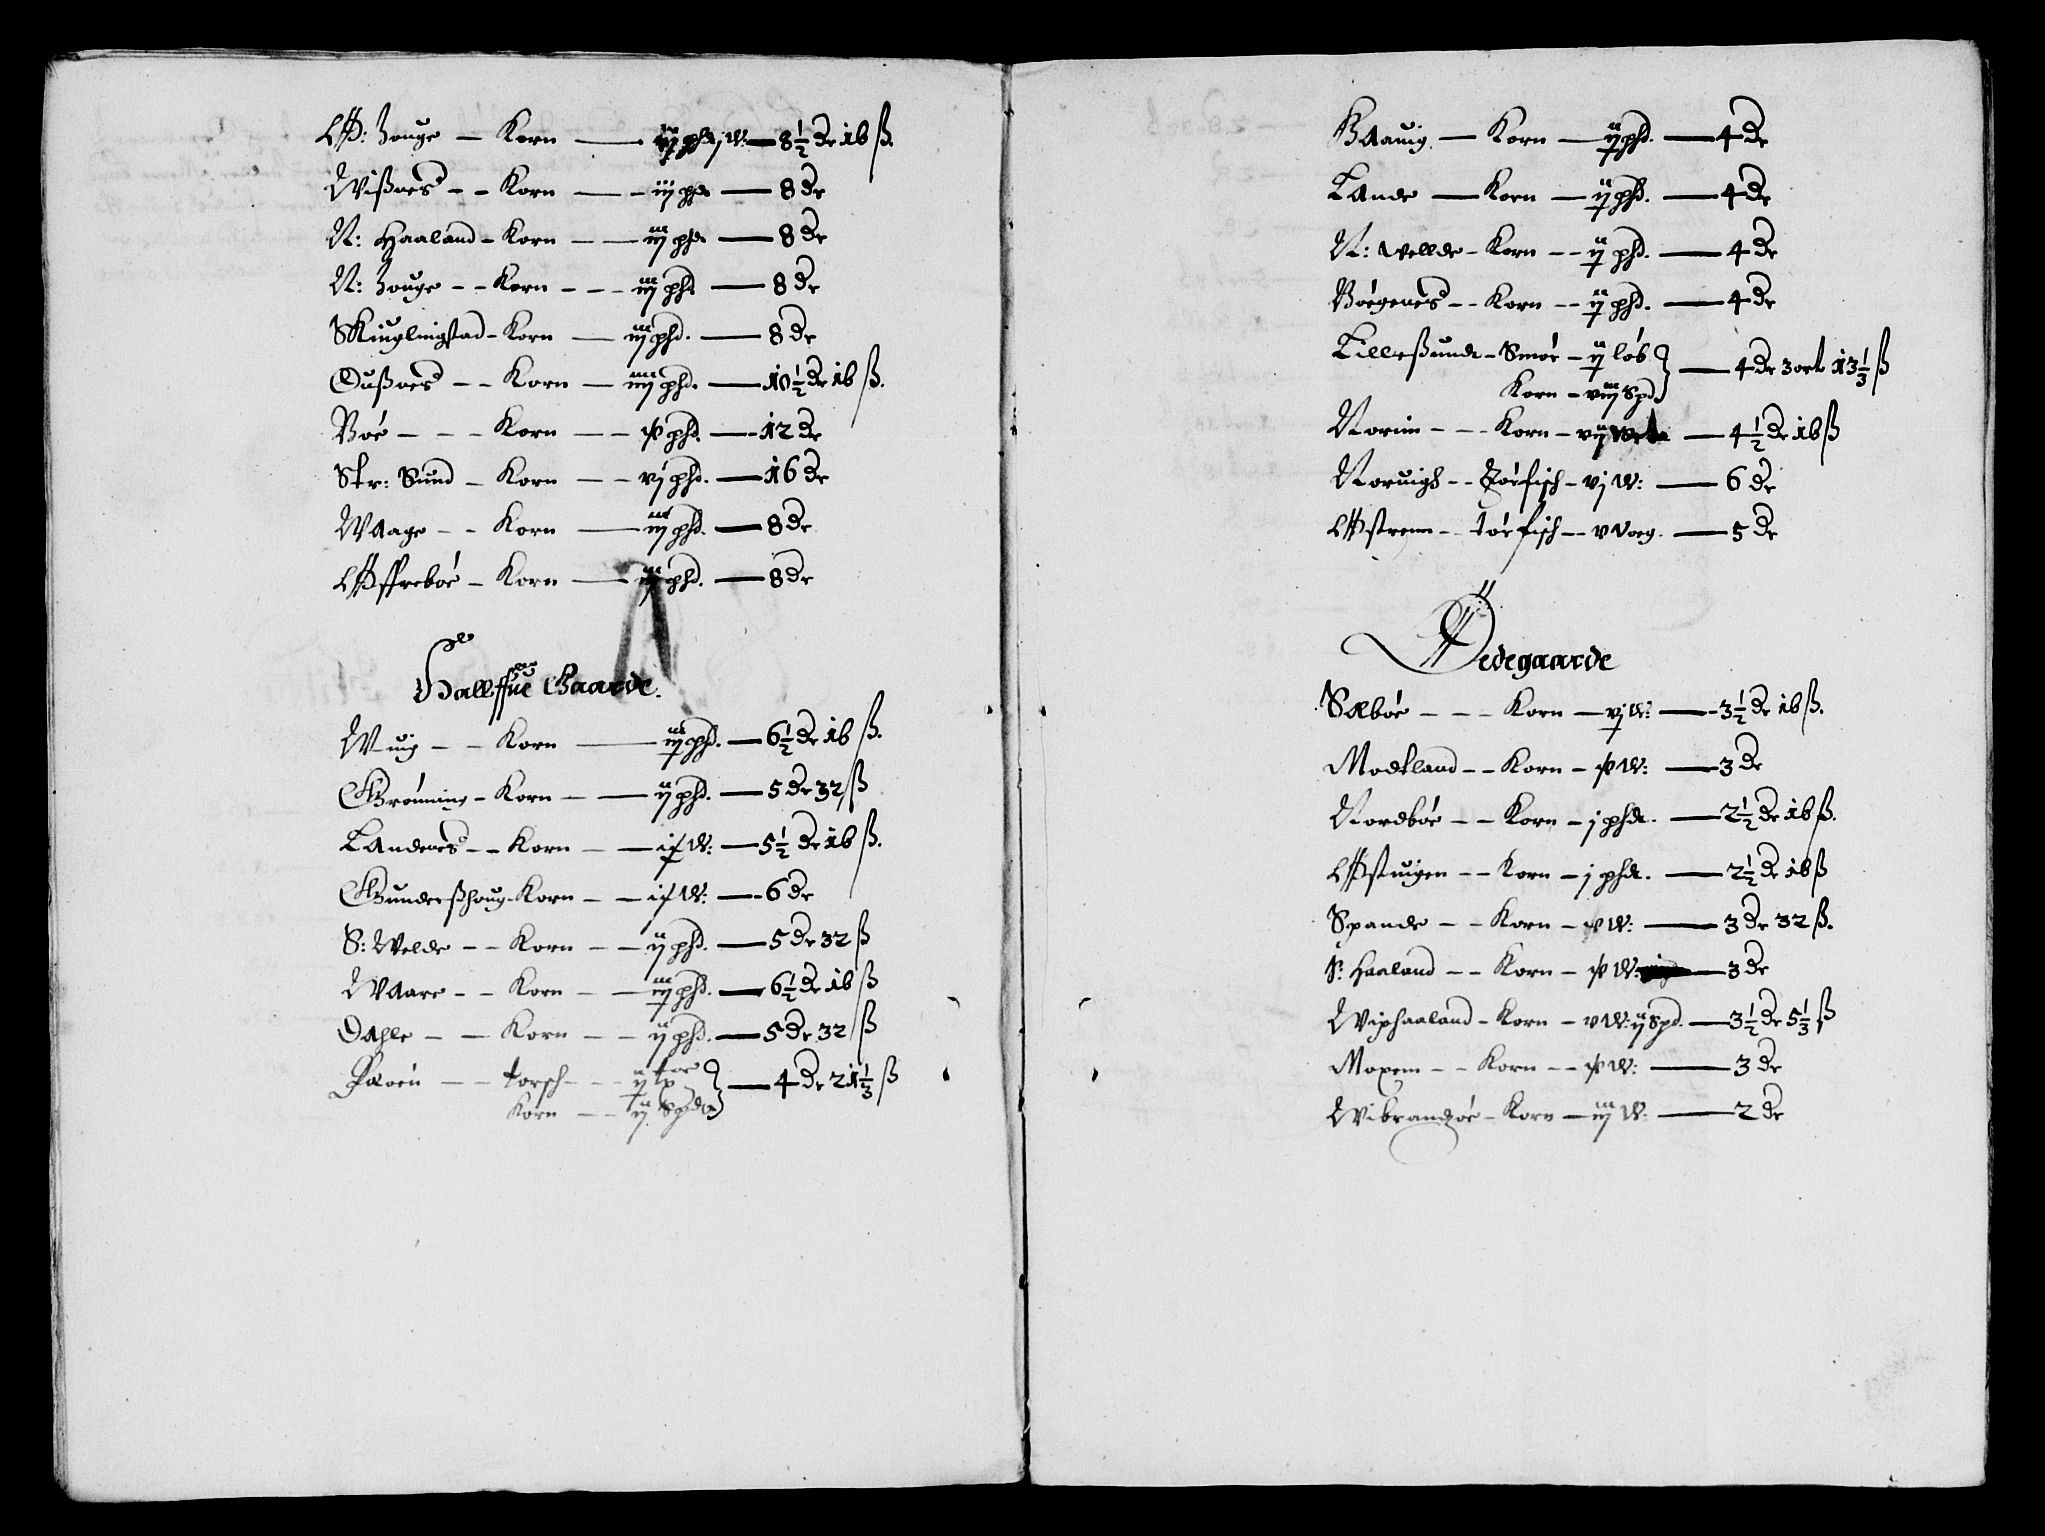 Ø: Houge — Korn — iij phd j W: — 8½ Dr 16 ß.
Wißnes – – Korn — – iij phd — 8 Dr
N: Haaland – Korn – — iiij phd — 8 Dr
N: Houge – – Korn – – – iiij phd — 8 Dr
Skiuglingstad – Korn — iiij phd. — 8 Dr
Oußnes – – Korn — iiiij phd. — 10½ Dr 16 ß.
Böe – – – Korn – — phd. — 12 Dr
Str: Sund – Korn – – vj phd. — 16 Dr
Waage – – Korn — iiij phd. — 8 Dr
Øffreböe – Korn — iiij phd. — 8 Dr
Hallffue Gaarde.
Wuig – – Korn — iij phd. — 6½ Dr 16 ß.
Grönning – Korn – — ij phd. — 5 Dr 32 ß
Landenes – – Korn — W: — 5½ Dr 16 ß.
Gunderßhoug – Korn – – W: — 6 Dr
S: Welde – – Korn – – ij phd. — 5 Dr 32 ß
Waare – – Korn – — iij phd. — 6½ Dr 16 ß
Dahle – – Korn – – ij phd. — 5 Dr 32 ß
– – torsch – – ij
Korn – – ij Spd } — 4 Dr 21⅓ ß
Gaauig — Korn — ij phd. — 4 Dr
Lande — Korn — ij phd. — 4 Dr
N: Wellde – Korn – – ij phd. — 4 Dr
Börgenes – – Korn – – ij phd. — 4 Dr
Lilleßund – Smör – ij löb
Korn – viij Spd } — 4 Dr 3 ort 13⅓ ß
Norim – – – Korn – vij — 4½ Dr 16 ß
Noruigh – – Törfisch – vj W: — 6 Dr
Østrem – – törfisch – – v Voeg. — 5 Dr
Ødegaarde
Sæböe – – – Korn — vj W: — 3½ Dr 16 ß.
Modtland – – Korn – W: — 3 Dr
Nordböe – – Korn – j phd. — 2½ Dr 16 ß.
Østuigen – – Korn – j phd. — 2½ Dr 16 ß
Spande – – Korn – W: — 3 Dr 32 ß.
S: Haaland – – Korn – W: — 3 Dr
Wiphaaland – Korn – v W: ij Spd. — 3½ Dr 5⅓ ß
Moxem – – Korn – – W: — 3 Dr
Wibrandzöe – Korn — iiij W: — 2 Dr